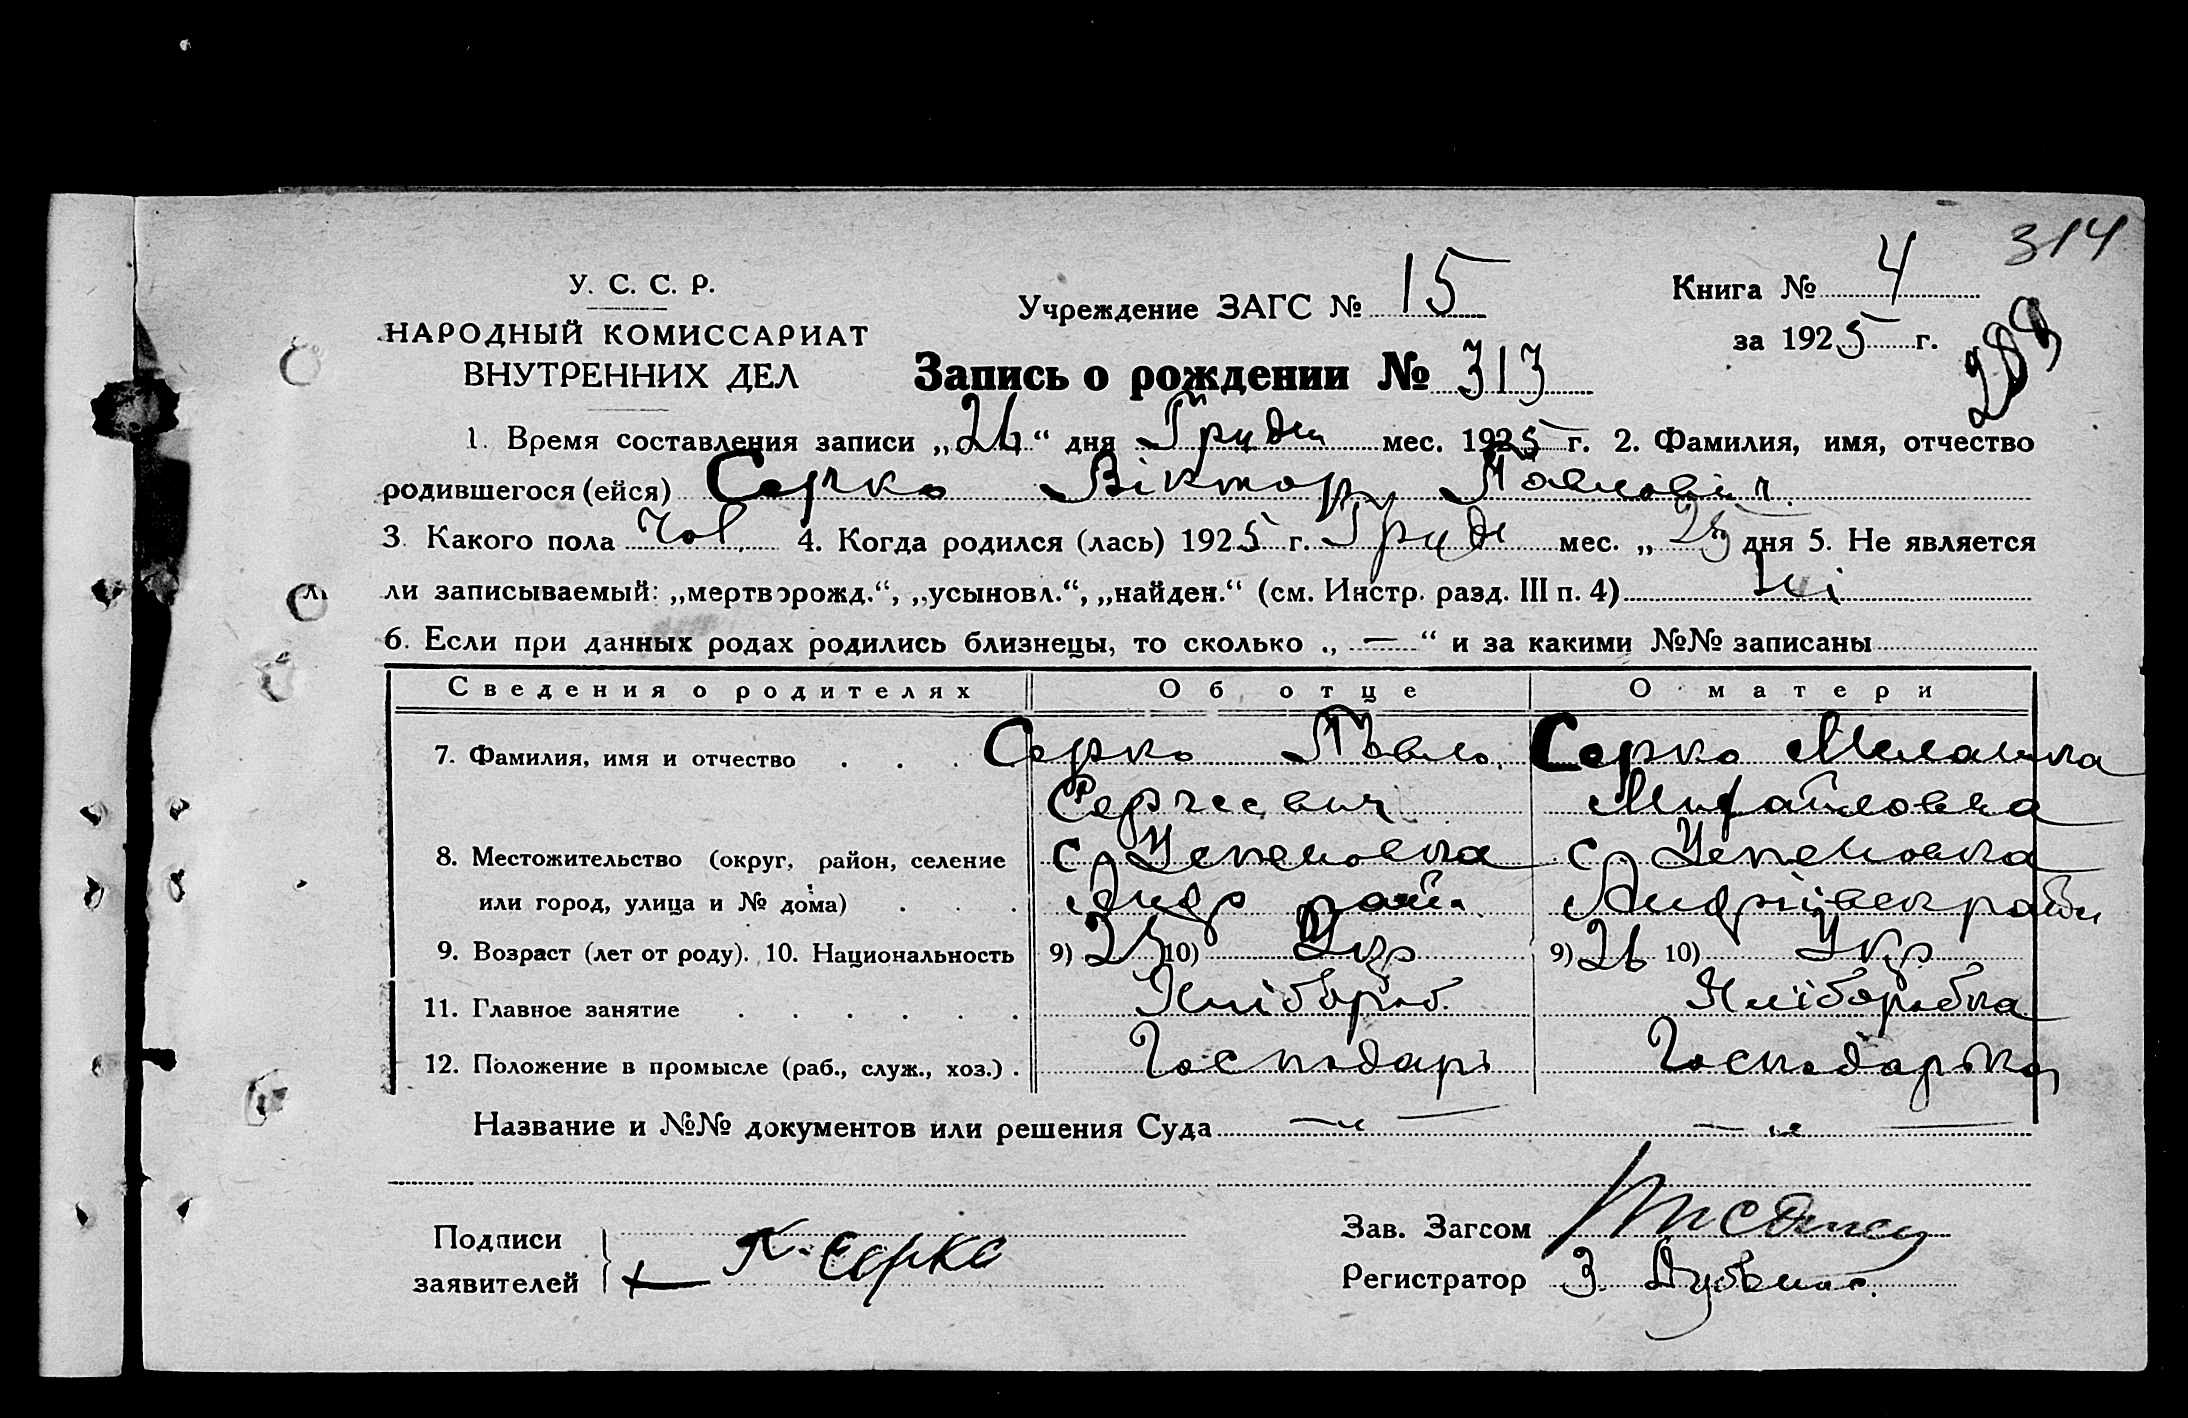 314
У. С. С. Р.
НАРОДНЫЙ КОМИССАРИАТ
ВНУТРЕННИХ ДЕЛ
Учреждение ЗАГС № 15
Книга № 4
за 1925 г.
Запись о рождении № 313
1. Время составления записи „26“ дня Грудня мес. 1925 г. 2. Фамилия, имя, отчество
родившегося (ейся) Серко Віктор Павлович
3. Какого пола чол. 4. Когда родился (лась) 1925 г. Груд мес. „ дня 5. Не является
ли записываемый: „мертворожд.“, „усыновл.“, „найден.“ (см. Инстр. разд. III п. 4) Ні
6. Если при данных родах родились близнецы, то сколько „ — “ и за какими №№ записаны
Сведения о родителях Об отце О матери
7. Фамилия, имя и отчество . . . Серко Павло Серко Меланка
Сергеевич Михайловна
8. Местожительство (округ, район, селение с. Успеновка с. Успеновка
или город, улица и № дома) . . . Андр район Андріївск район
9. Возраст (лет от роду). 10. Национальность 9) 10) Укр 9) 26 10) Укр
11. Главное занятие . . . . . . Хлібороб Хліборобка
12. Положение в промысле (раб., служ., хоз.) . Господарь Господарька
Название и №№ документов или решения Суда
Подписи
заявителей П. Серко
Зав. Загсом
Регистратор З.